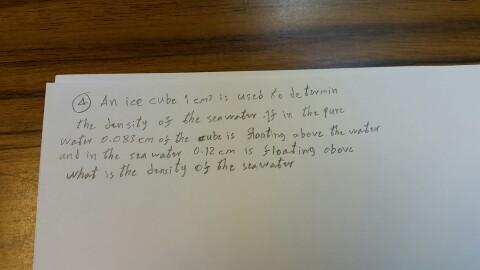 ④ An ice cube 1 cm³ is used to determin
the density of the seawater. If in the pure
water 0.083 cm of the cube is floating above the water
and in the sea water 0.12 cm is floating above
what is the density of the seawater